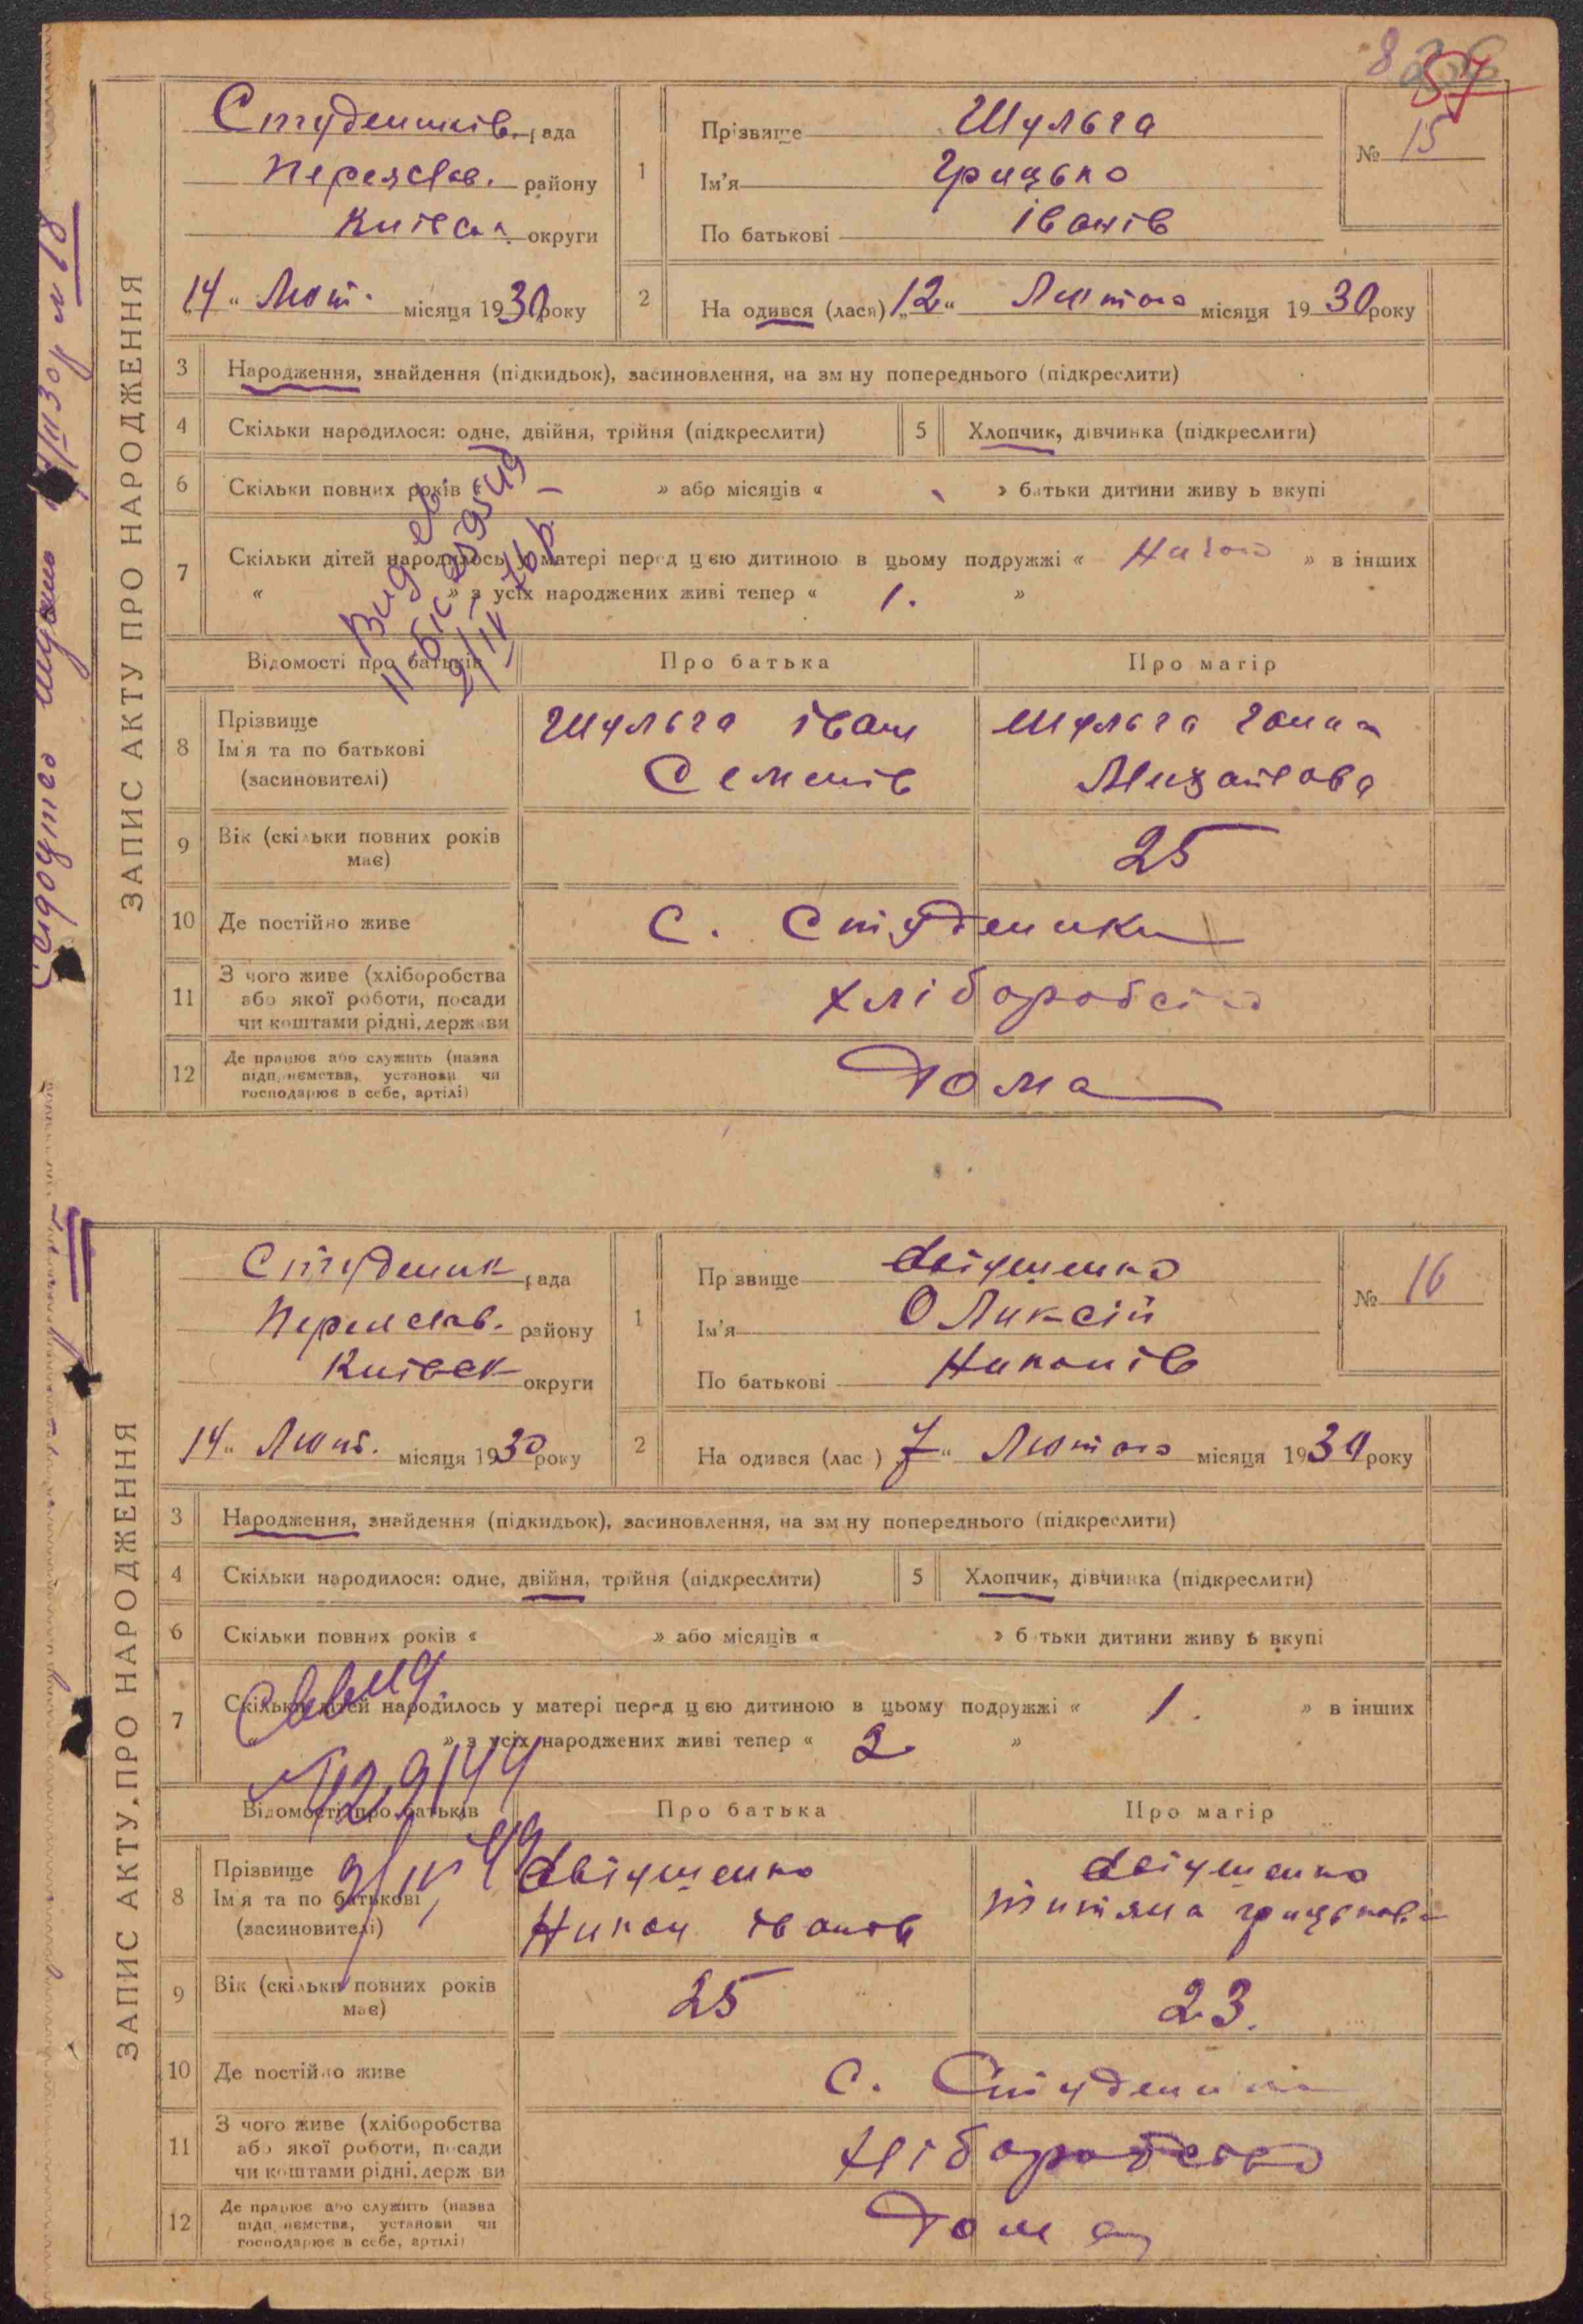 57
15
ЗАПИС АКТУ ПРО НАРОДЖЕННЯ
Студеників. рада
Переяслав. району
Київськ. округи
14 " Лют. місяця 1930 року
1
Прізвище Шульга
Ім'я Грицько
По батькові Іванів
№ 15
2 На одився (лася) "12" Лютого місяця 1930 року
3 Народження, знайдення (підкидьок), засиновлення, на зм ну попереднього (підкреслити)
4 Скільки народилося: одне, двійня, трійня (підкреслити) 5 Хлопчик, дівчинка (підкреслити)
6 Скільки повних років « » або місяців « » б тьки дитини живу ь вкупі
7 Скільки дітей народилось у матері перед цією дитиною в цьому подружжі « » в інших
« » з усіх народжених живі тепер « 1. »
Відомості про батьків Про батька Про матір
8 Прізвище
Ім'я та по батькові
(засиновителі)
Шульга Іван
Семенів
Шульга Ганна
Михайлова
9 Вік (скільки повних років
має)
25
10 Де постійно живе с. Студеники
11 З чого живе (хліборобства
або якої роботи, посади
чи коштами рідні, держави
хліборобство
12 Де працює або служить (назва
підп иємства, установи чи
господарює в себе, артілі)
Дома
ЗАПИС АКТУ ПРО НАРОДЖЕННЯ
Студеник рада
Переяслав. району
Київськ округи
14 " Лют. місяця 1930 року
1
Пр звище Євтушенко
Ім'я Оликсій
По батькові Никонів
№ 16
2 На одився (лас ) "7" Лютого місяця 1930 року
3 Народження, знайдення (підкидьок), засиновлення, на зм ну попереднього (підкреслити)
4 Скільки народилося: одне, двійня, трійня (підкреслити) 5 Хлопчик, дівчинка (підкреслити)
6 Скільки повних років « » або місяців « » б тьки дитини живу ь вкупі
7 Скільки дітей народилось у матері перед цією дитиною в цьому подружжі « 1. » в інших
» з усіх народжених живі тепер « 2 »
Відомості про батьків Про батька Про матір
8 Прізвище
Ім'я та по батькові
(засиновителі)
Никон Іванів
9 Вік (скільки повних років
має)
25 23.
10 Де постійно живе с. Студеники
11 З чого живе (хліборобства
або якої роботи, посади
чи коштами рідні, держ ви
хліборобство
12 Де працює або служить (назва
підп иємства, установи чи
господарює в себе, артілі)
Дома